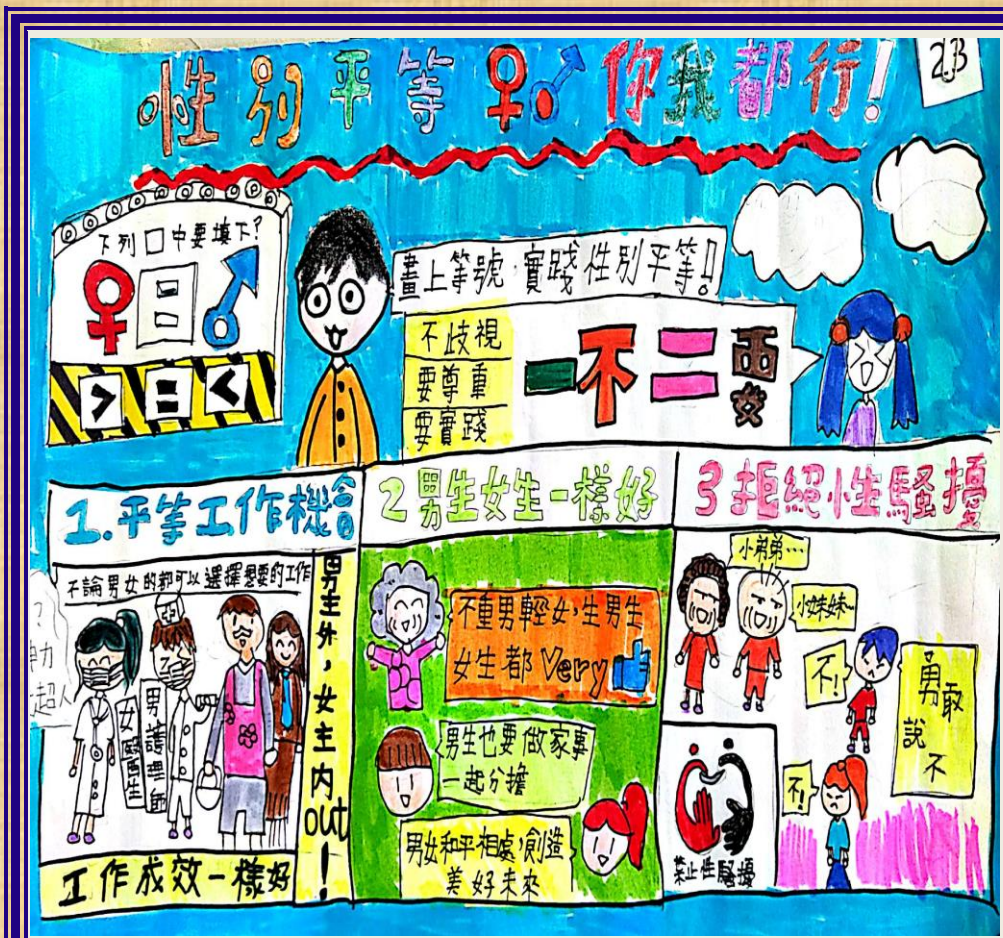 性別平等 你我都行!
23
下列□中要填下?
> = <
畫上等號,實踐性別平等!!
不歧視
要尊重
要實踐
一不二要
1.平等工作機會
不論男女的都可以選擇想要的工作
女醫生
男護理師
男主外,女主內out!
工作成效一樣好
2男生女生一樣好
不重男輕女,生男生
女生都Very
男生也要做家事
一起分擔
男女和平相處,創造
美好未來
3拒絕性騷擾
小弟弟…
小妹妹~
不!
不!
勇敢
說
不
禁止性騷擾